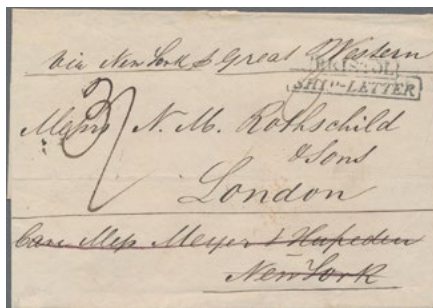 Via New York p Great Western
BRISTOL
SHIP-LETTER
Messrs N. M. Rothschild
& Sons
London
Care Mess Meyer & Hupeden
New York